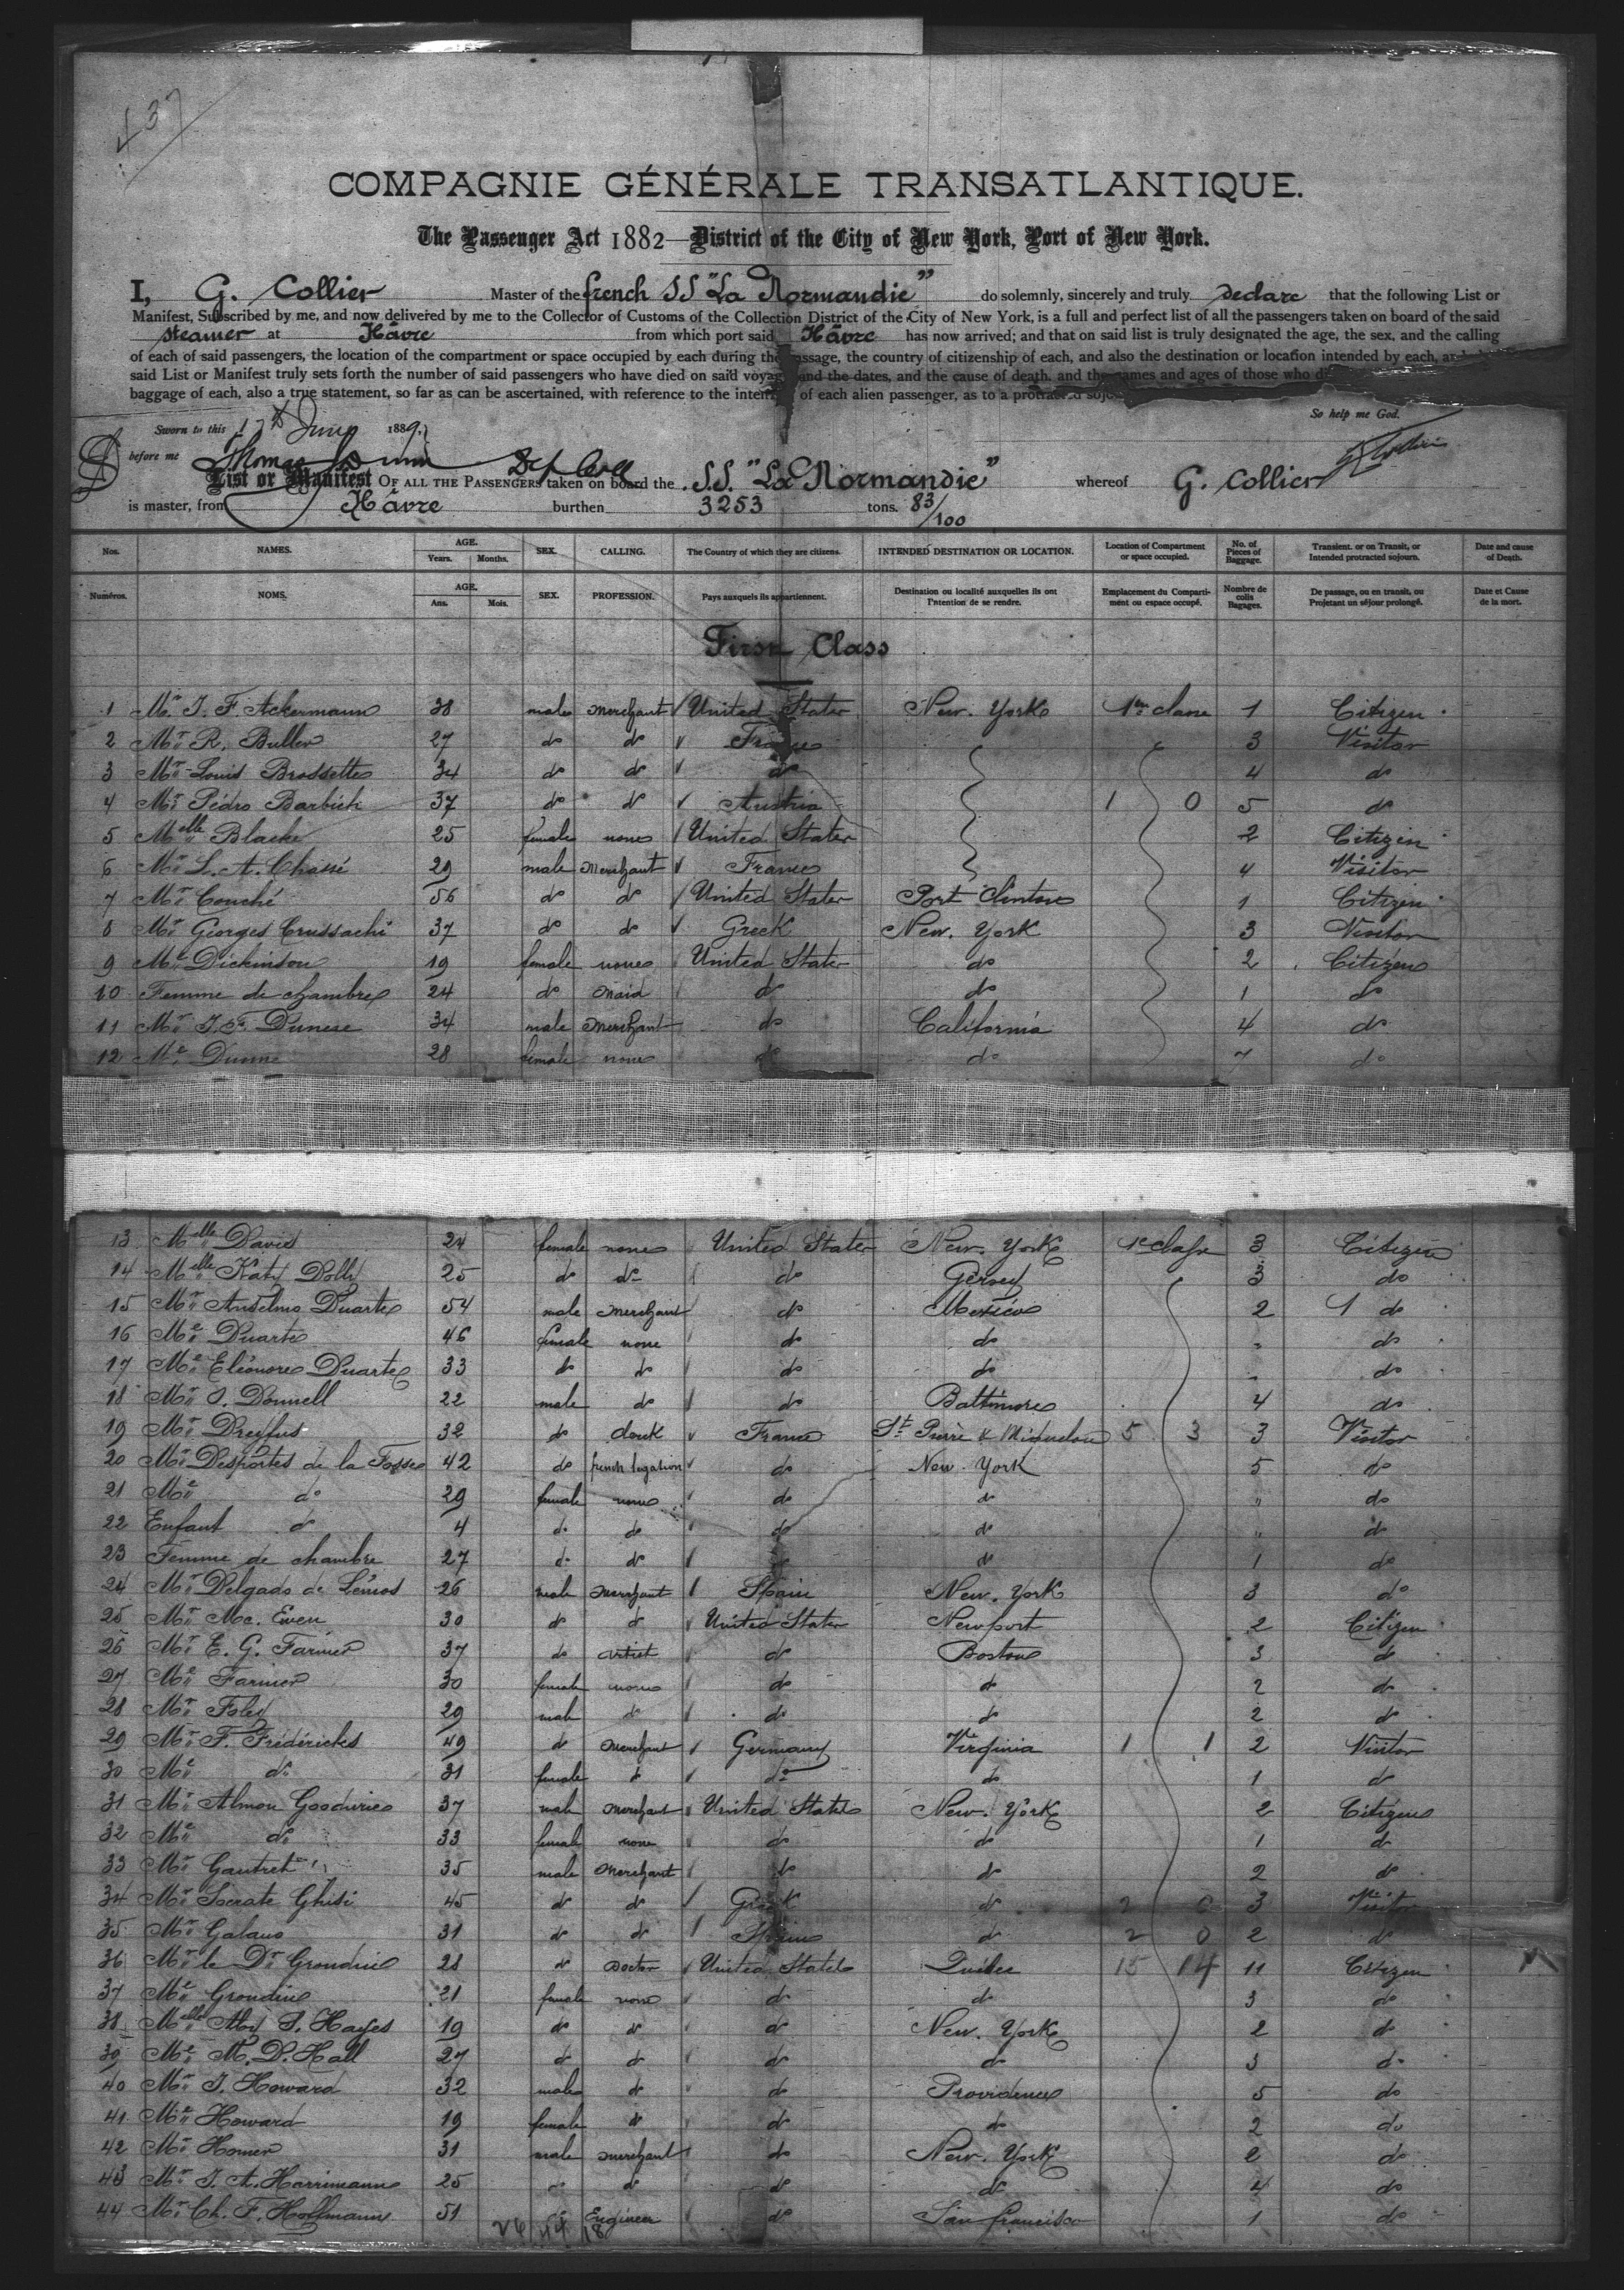 437
COMPAGNIE GÉNÉRALE TRANSATLANTIQUE.
The Passenger Act 1882—District of the City of New York, Port of New York.
I, G. Collier Master of the french SS "La Normandie" do solemnly, sincerely and truly declare that the following List or
Manifest, Subscribed by me, and now delivered by me to the Collector of Customs of the Collection District of the City of New York, is a full and perfect list of all the passengers taken on board of the said
steamer at Hâvre from which port said Hâvre has now arrived; and that on said list is truly designated the age, the sex, and the calling
of each of said passengers, the location of the compartment or space occupied by each during the passage, the country of citizenship of each, and also the destination or location intended by each, and
said List or Manifest truly sets forth the number of said passengers who have died on said voyage and the dates, and the cause of death, and the names and ages of those who
baggage of each, also a true statement, so far as can be ascertained, with reference to the of each alien passenger, as to a protracted
So help me God.
Sworn to this 17th June 1889,
before me Thomas Dunn Dep Coll G Collier
List or Manifest OF ALL THE PASSENGERS taken on board the S.S. "La Normandie" whereof G. Collier
is master, from Hâvre burthen 3253 tons. 83/100
Nos. NAMES. AGE. Years. Months. SEX. CALLING. The Country of which they are citizens. INTENDED DESTINATION OR LOCATION. Location of Compartment or space occupied. No. of Pieces of Baggage. Transient. or on Transit, or Intended protracted sojourn. Date and cause of Death.
Numéros. NOMS. AGE. Ans. Mois. SEX. PROFESSION. Pays auxquels ils appartiennent. Destination ou localité auxquelles ils ont l'intention de se rendre. Emplacement du Compartiment ou espace occupé. Nombre de colis Bagages. De passage, ou en transit, ou Projetant un séjour prolongé. Date et Cause de la mort.
First Class
1 Mr. J. F. Ackermann 38 male merchant United States New. York 1ere classe 1 Citizen
2 Mr R. Buller 27 do do France 3 Visitor
3 Mr Louis Brossette 34 do do do 4 do
4 Mr Pédro Barbich 37 do do Austria 1 0 5 do
5 Melle Blacke 25 female none United States 2 Citizen
6 Mr L. A. Chassé 29 male merchant France 4 Visitor
7 Mr Couché 56 do do United States Port Clinton 1 Citizen
8 Mr Georges Crussachi 37 do do Greek New. York 3 Visitor
9 Me Dickinson 19 female none United States do 2 Citizen
10 Femme de chambre 24 do maid do do 1 do
11 Mr J. F. Dunese 34 male merchant do California 4 do
12 Me Dunne 28 female none do do 7 do
13 Melle David 24 female none United States New. York 1e classe 3 Citizen
14 Melle Katy Dolly 25 do do do Gersey 3 do
15 Mr Anselmo Duarte 54 male merchant do Mexico 2 1 do
16 Me Duarte 46 female none do do " do
17 Me Eléonore Duarte 33 do do do do " do
18 Mr S. Donnell 22 male do do Baltimore 4 do
19 Mr Dreyfus 32 do clerk France St Pierre & Miquelon 5 3 3 Visitor
20 Mr Desportes de la Fosse 42 do french legation do New. York 5 do
21 Me do 29 female none do do " do
22 Enfant do 4 do do do do " do
23 Femme de chambre 27 do do do 1 do
24 Mr Delgado de Lémos 26 male merchant Spain New. York 3 do
25 Mr Mc. Ewen 30 do do United States Newport 2 Citizen
26 Mr E. G. Farmer 37 do artist do Boston 3 do
27 Me Farmer 30 female none do do 2 do
28 Mr Foley 29 male do do do 2 do
29 Mr F. Frédéricks 49 do merchant Germany Virginia 1 1 2 Visitor
30 Me do 31 female do do do 1 do
31 Mr Almon Goodwin 37 male merchant United States New. York 2 Citizen
32 Me do 33 female none do do 1 do
33 Mr Gautret 35 male merchant do do 2 do
34 Mr Socrate Ghisi 45 do do Greek do 2 0 3 Visitor
35 Mr Galano 31 do do Spain do 2 0 2 do
36 Mr le Dr Grondin 28 do Doctor United States Québec 15 14 11 Citizen
37 Me Grondin 21 female none do do 3 do
38 Melle S. Hayes 19 do do do New. York 2 do
39 Me M. D. Hall 27 do do do do 3 do
40 Mr J. Howard 32 male do do Providence 5 do
41 Me Howard 19 female do do do 2 do
42 Mr Homer 31 male merchant do New. York 2 do
43 Mr J. A. Harrimann 25 do do do do 4 do
44 Mr Ch. F. Hoffmann 51 do Engineer do San francisco 1 do
26 44 18